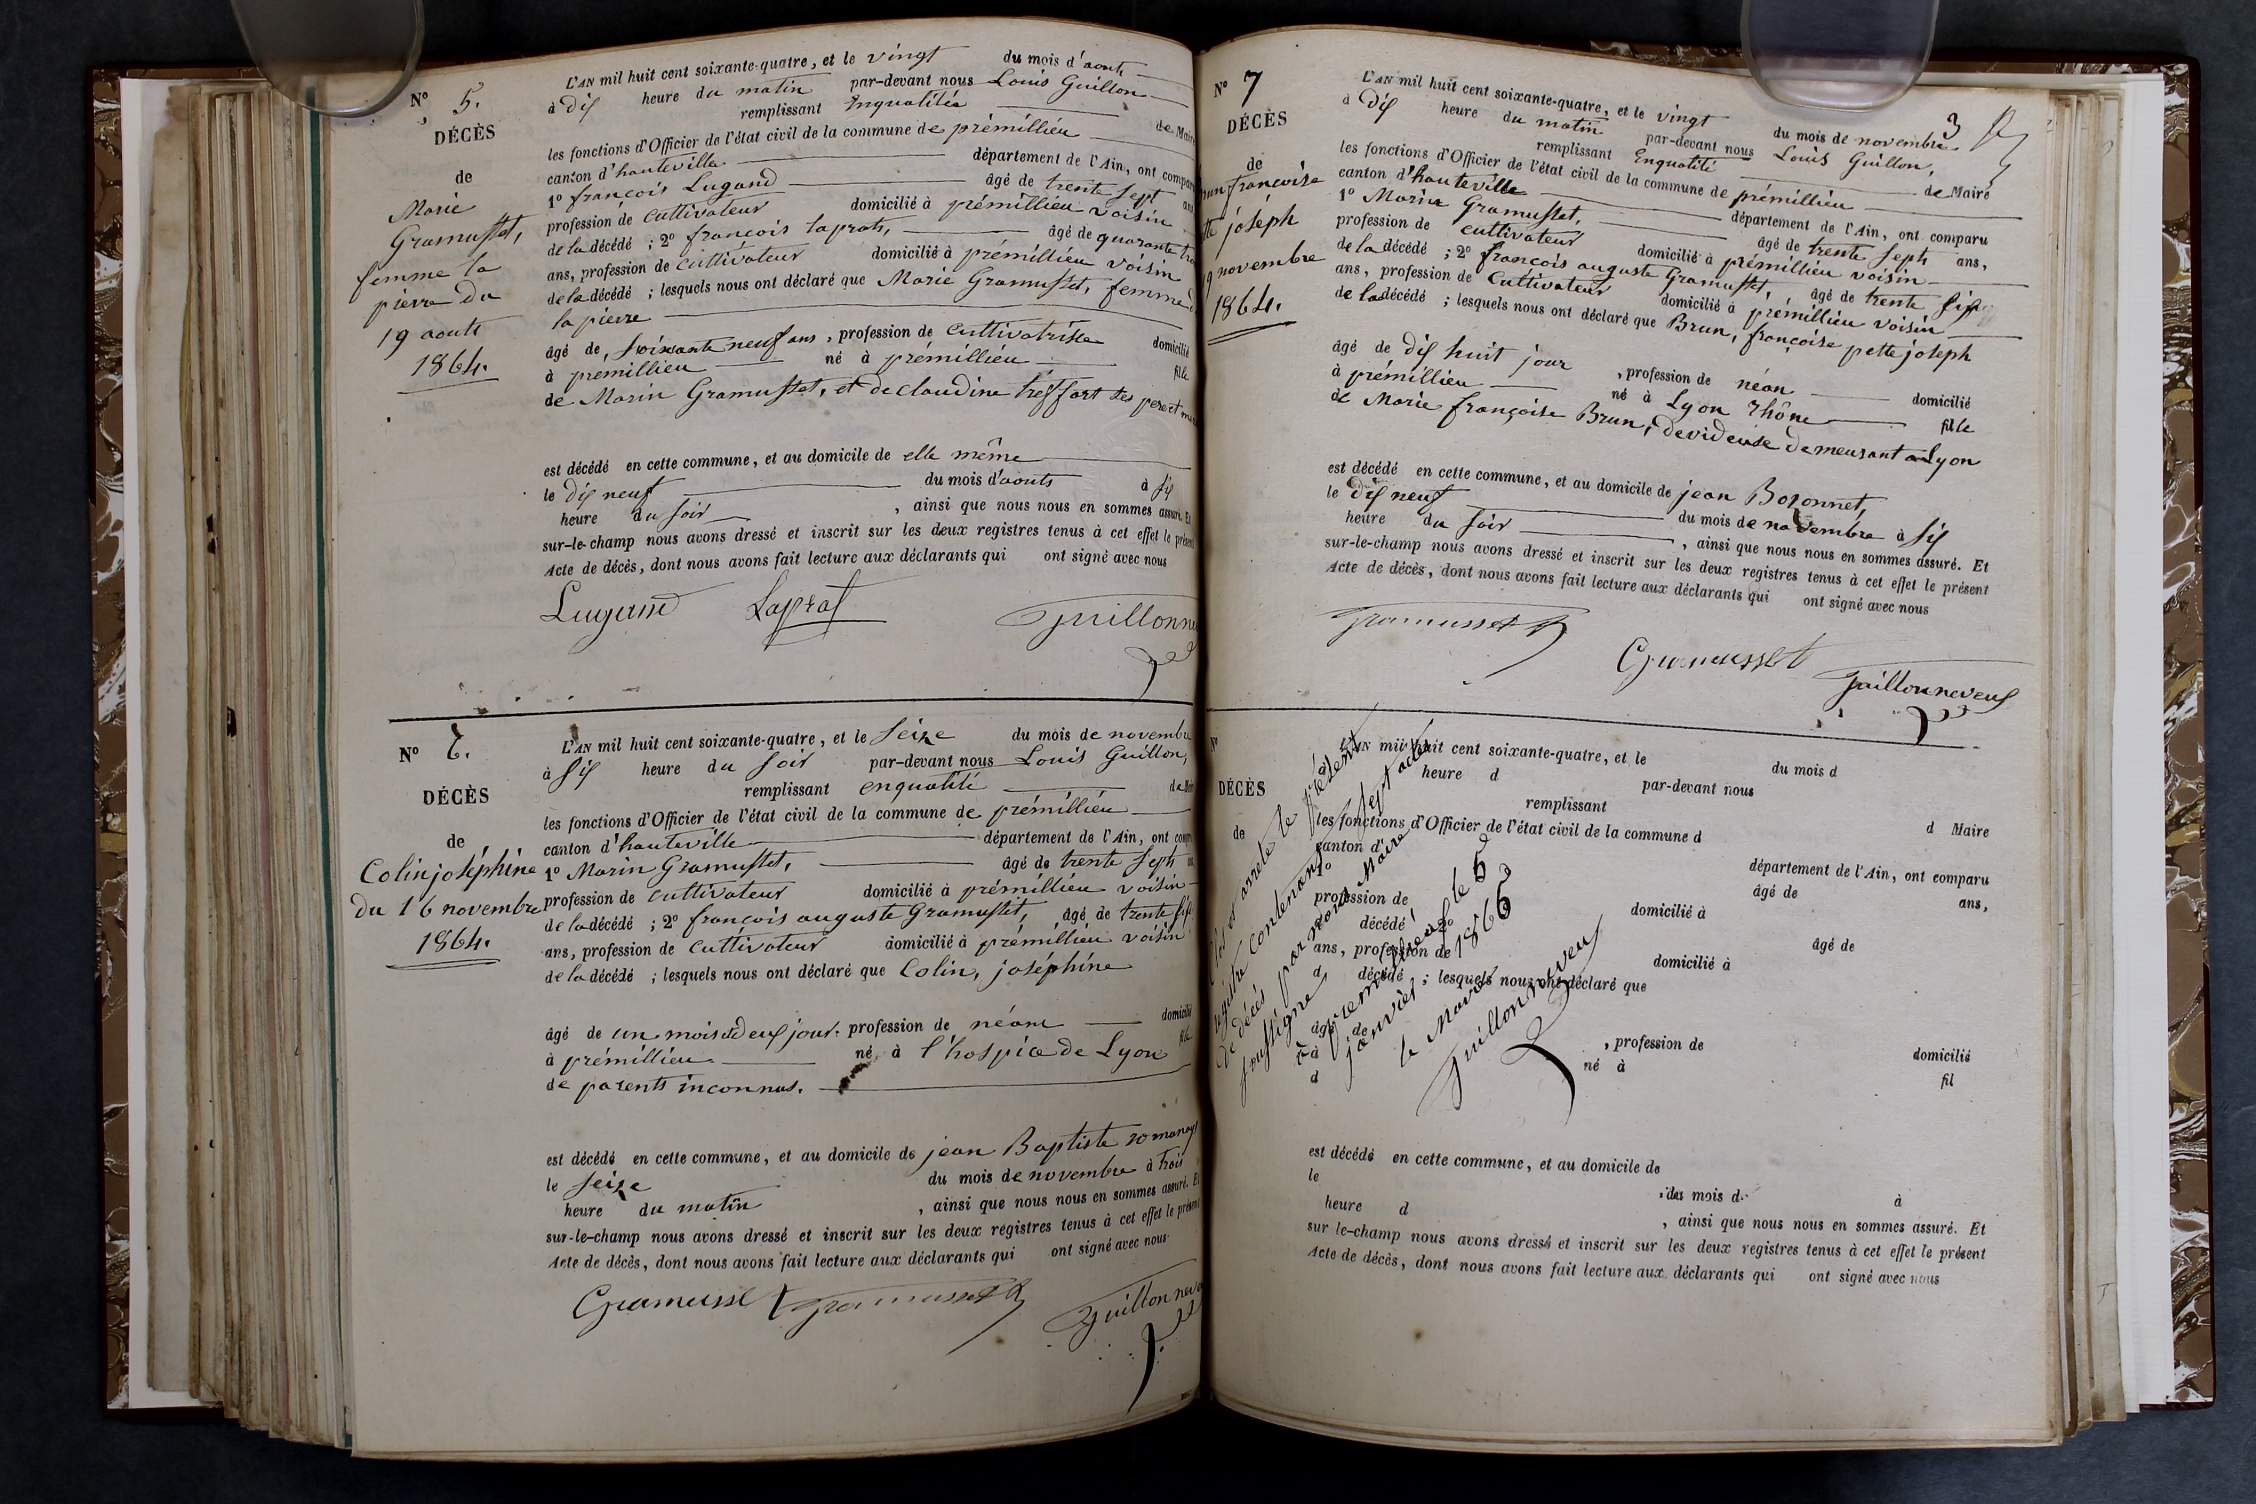 N° 5.
DÉCÈS
de
Marie
Gramusset,
femme la
pierre du
19 aouts
1864.
L'AN mil huit cent soixante-quatre, et le vingt du mois d'aouts
à dix heure du matin par-devant nous Louis Guillon
remplissant Inqualitéa de Maire
les fonctions d'Officier de l'état civil de la commune de prémillieu
canton d'hauteville département de l'Ain, ont comparu
1° françois Lugand âgé de trente sept ans
profession de cultivateur domicilié à prémillieu voisin
de la décédé ; 2° françois laprats, âgé de quarante
ans, profession de cultivateur domicilié à prémillieu voisin
de la décédé ; lesquels nous ont déclaré que Marie Gramusset, femme
la pierre
âgé de soixante neuf ans, profession de cultivatrisse domicilié
à prémillieu né à prémillieu fille
de Marin Gramusset, et de claudine treffort ses pere et
est décédé en cette commune, et au domicile de elle même
le dix neuf du mois d'aouts à six
heure du soir, ainsi que nous nous en sommes assuré. Et
sur-le-champ nous avons dressé et inscrit sur les deux registres tenus à cet effet le présent
Acte de décès, dont nous avons fait lecture aux déclarants qui ont signé avec nous
Lugand Laprat Guillon
N° 6.
DÉCÈS
de
Colin joséphine
du 16 novembre
1864.
L'AN mil huit cent soixante-quatre, et le seize du mois de novembre
à six heure du soir par-devant nous Louis Guillon,
remplissant enqualité de
les fonctions d'Officier de l'état civil de la commune de prémillieu
canton d'hauteville département de l'Ain, ont
1° Marin Gramusset, âgé de trente sept
profession de cultivateur domicilié à prémillieu voisin
de la décédé ; 2° françois auguste Gramusset, âgé de trente six
ans, profession de cultivateur domicilié à prémillieu voisin
de la décédé ; lesquels nous ont déclaré que Colin, joséphine
âgé de un mois et deux jour, profession de néant domicilié
à prémillieu né à l'hospice de Lyon fille
de parents inconnus.
est décédé en cette commune, et au domicile de jean Baptiste
le seize du mois de novembre à trois
heure du matin, ainsi que nous nous en sommes assuré. Et
sur-le-champ nous avons dressé et inscrit sur les deux registres tenus à cet effet le présent
Acte de décès, dont nous avons fait lecture aux déclarants qui ont signé avec nous
Gramusset Gramusset Guillon
3
N° 7
DÉCÈS
de
françoise
joséph
novembre
1864.
L'AN mil huit cent soixante-quatre, et le vingt du mois de novembre
à dix heure du matin par-devant nous Louis Guillon,
remplissant Enqualité de Maire
les fonctions d'Officier de l'état civil de la commune de prémillieu
canton d'hauteville département de l'Ain, ont comparu
1° Marin Gramusset, âgé de trente seph ans,
profession de cultivateur domicilié à prémillieu voisin
de la décédé ; 2° françois auguste Gramusset, âgé de trente six
ans, profession de Cultivateur domicilié à prémillieu voisin
de la décédé ; lesquels nous ont déclaré que Brun, françoise pette joseph
âgé de dix huit jour, profession de néan domicilié
à prémillieu né à Lyon Rhône fille
de Marie françoise Brun, devideuse demeurant a Lyon
est décédé en cette commune, et au domicile de jean Bozonnet,
le dix neuf du mois de novembre à six
heure du soir, ainsi que nous nous en sommes assuré. Et
sur-le-champ nous avons dressé et inscrit sur les deux registres tenus à cet effet le présent
Acte de décès, dont nous avons fait lecture aux déclarants qui ont signé avec nous
Gramusset Gramusset Guillon neveux
N°
DÉCÈS
de
L'AN mil huit cent soixante-quatre, et le du mois d
heure d par-devant nous
remplissant d Maire
les fonctions d'Officier de l'état civil de la commune d
canton d' département de l'Ain, ont comparu
1° âgé de ans,
profession de domicilié à
d décédé ; 2° âgé de
ans, profession de domicilié à
d décédé ; lesquels nous ont déclaré que
âgé de , profession de domicilié
à né à fil
d
clos et arrété le présent
registre contenant sept actes
de décès par nous Maire
soussigné
à prémillieu le 5
janvier 1865
le Maire
Guillon neveux
est décédé en cette commune, et au domicile de
le du mois d à
heure d , ainsi que nous nous en sommes assuré. Et
sur le-champ nous avons dressé et inscrit sur les deux registres tenus à cet effet le présent
Acte de décès, dont nous avons fait lecture aux déclarants qui ont signé avec nous